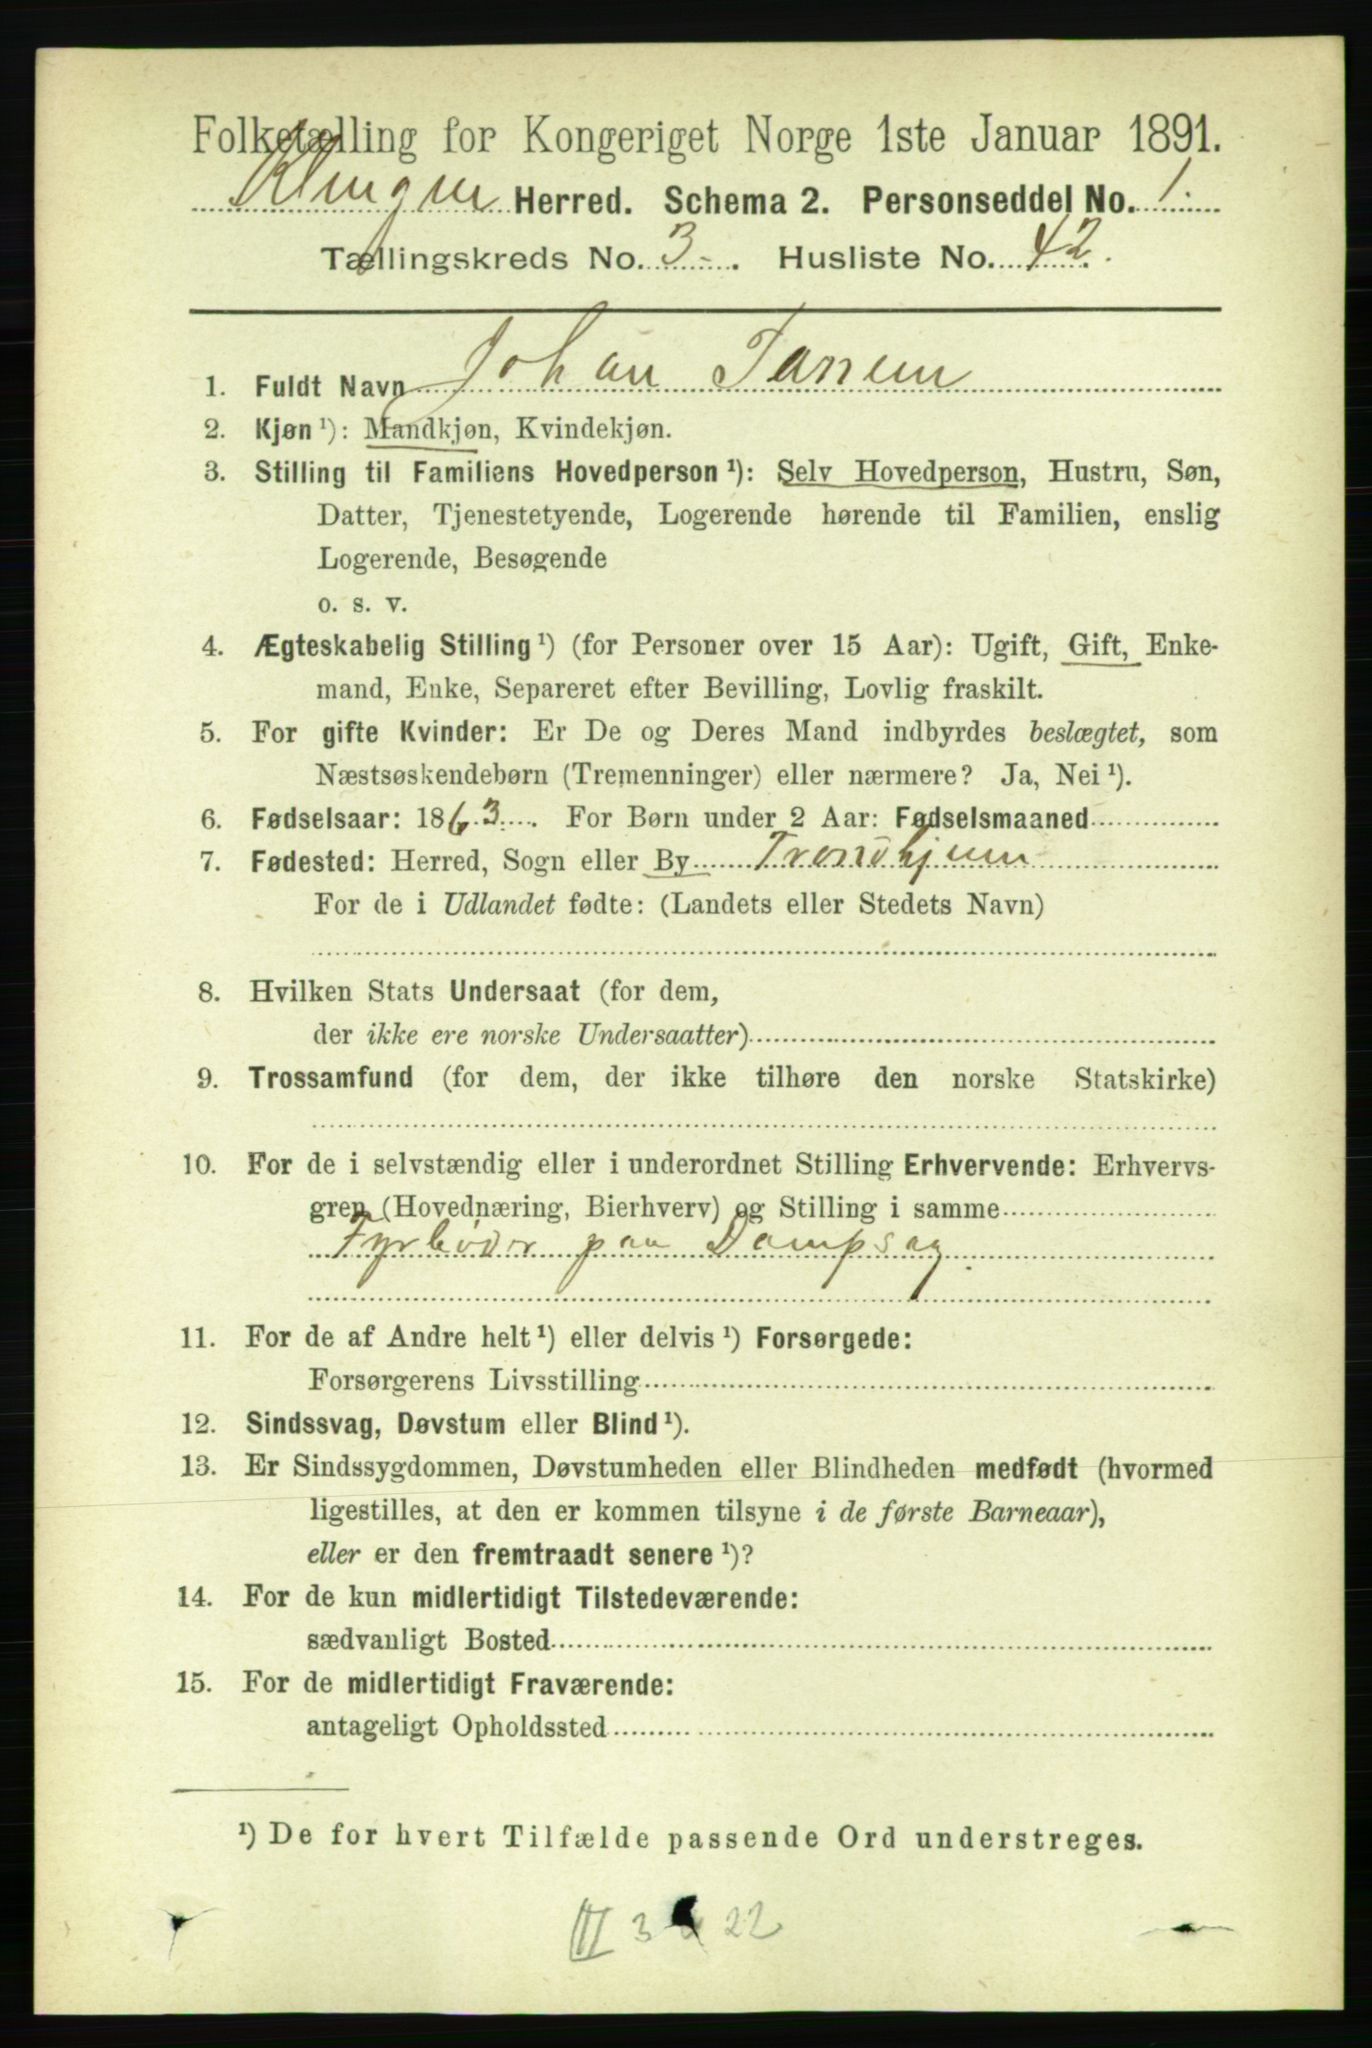 Folketælling for Kongeriget Norge 1ste Januar 1891.
Klingen Herred. Schema 2. Personseddel No. 1.
Tællingskreds No. 3. Husliste No. 42.
1. Fuldt Navn Johan Tanem
2. Kjøn ¹): Mandkjøn, Kvindekjøn.
3. Stilling til Familiens Hovedperson ¹): Selv Hovedperson, Hustru, Søn,
Datter, Tjenestetyende, Logerende hørende til Familien, enslig
Logerende, Besøgende
o. s. v.
4. Ægteskabelig Stilling ¹) (for Personer over 15 Aar): Ugift, Gift, Enke-
mand, Enke, Separeret efter Bevilling, Lovlig fraskilt.
5. For gifte Kvinder: Er De og Deres Mand indbyrdes beslægtet, som
Næstsøskendebørn (Tremenninger) eller nærmere? Ja, Nei ¹).
6. Fødselsaar: 1863. For Børn under 2 Aar: Fødselsmaaned
7. Fødested: Herred, Sogn eller By Trondhjem
For de i Udlandet fødte: (Landets eller Stedets Navn)
8. Hvilken Stats Undersaat (for dem,
der ikke ere norske Undersaatter)
9. Trossamfund (for dem, der ikke tilhøre den norske Statskirke)
10. For de i selvstændig eller i underordnet Stilling Erhvervende: Erhvervs-
gren (Hovednæring, Bierhverv) og Stilling i samme
Fyrbøder paa Dampsag
11. For de af Andre helt ¹) eller delvis ¹) Forsørgede:
Forsørgerens Livsstilling
12. Sindssvag, Døvstum eller Blind ¹).
13. Er Sindssygdommen, Døvstumheden eller Blindheden medfødt (hvormed
ligestilles, at den er kommen tilsyne i de første Barneaar),
eller er den fremtraadt senere ¹)?
14. For de kun midlertidigt Tilstedeværende:
sædvanligt Bosted
15. For de midlertidigt Fraværende:
antageligt Opholdssted
¹) De for hvert Tilfælde passende Ord understreges.
III 3 22